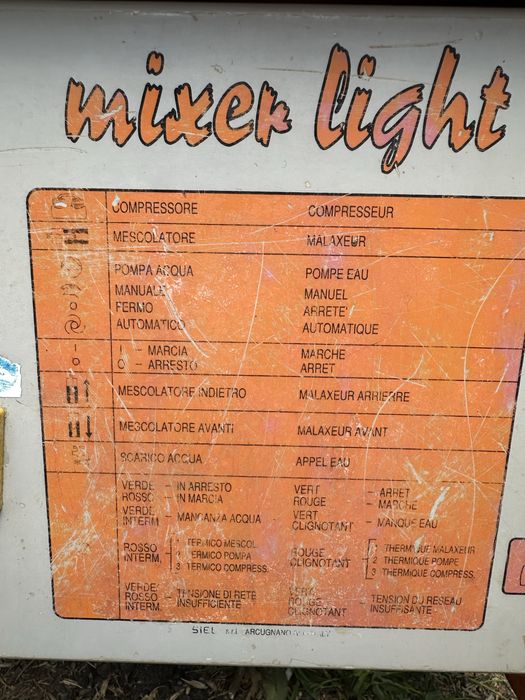 mixer light
COMPRESSORE COMPRESSEUR
MESCOLATORE MALAXEUR
POMPA ACQUA POMPE EAU
MANUALE MANUEL
FERMO ARRETE'
AUTOMATICO AUTOMATIQUE
I - MARCIA MARCHE
O - ARRESTO ARRET
MESCOLATORE INDIETRO MALAXEUR ARRIERRE
MESCOLATORE AVANTI MALAXEUR AVANT
SCARICO ACQUA APPEL EAU
VERDE - IN ARRESTO VERT - ARRET
ROSSO - IN MARCIA ROUGE - MARCHE
VERDE INTERM. - MANCANZA ACQUA VERT CLIGNOTANT - MANQUE EAU
ROSSO INTERM. 1 TERMICO MESCOL. ROUGE CLIGNOTANT 1 THERMIQUE MALAXEUR
2 TERMICO POMPA 2 THERMIQUE POMPE
3 TERMICO COMPRESS. 3 THERMIQUE COMPRESS.
VERDE VERT
ROSSO - TENSIONE DI RETE ROUGE - TENSION DU RESEAU
INTERM. INSUFFICIENTE CLIGNOTANT INSUFFISANTE
SIEL ARCUGNANO